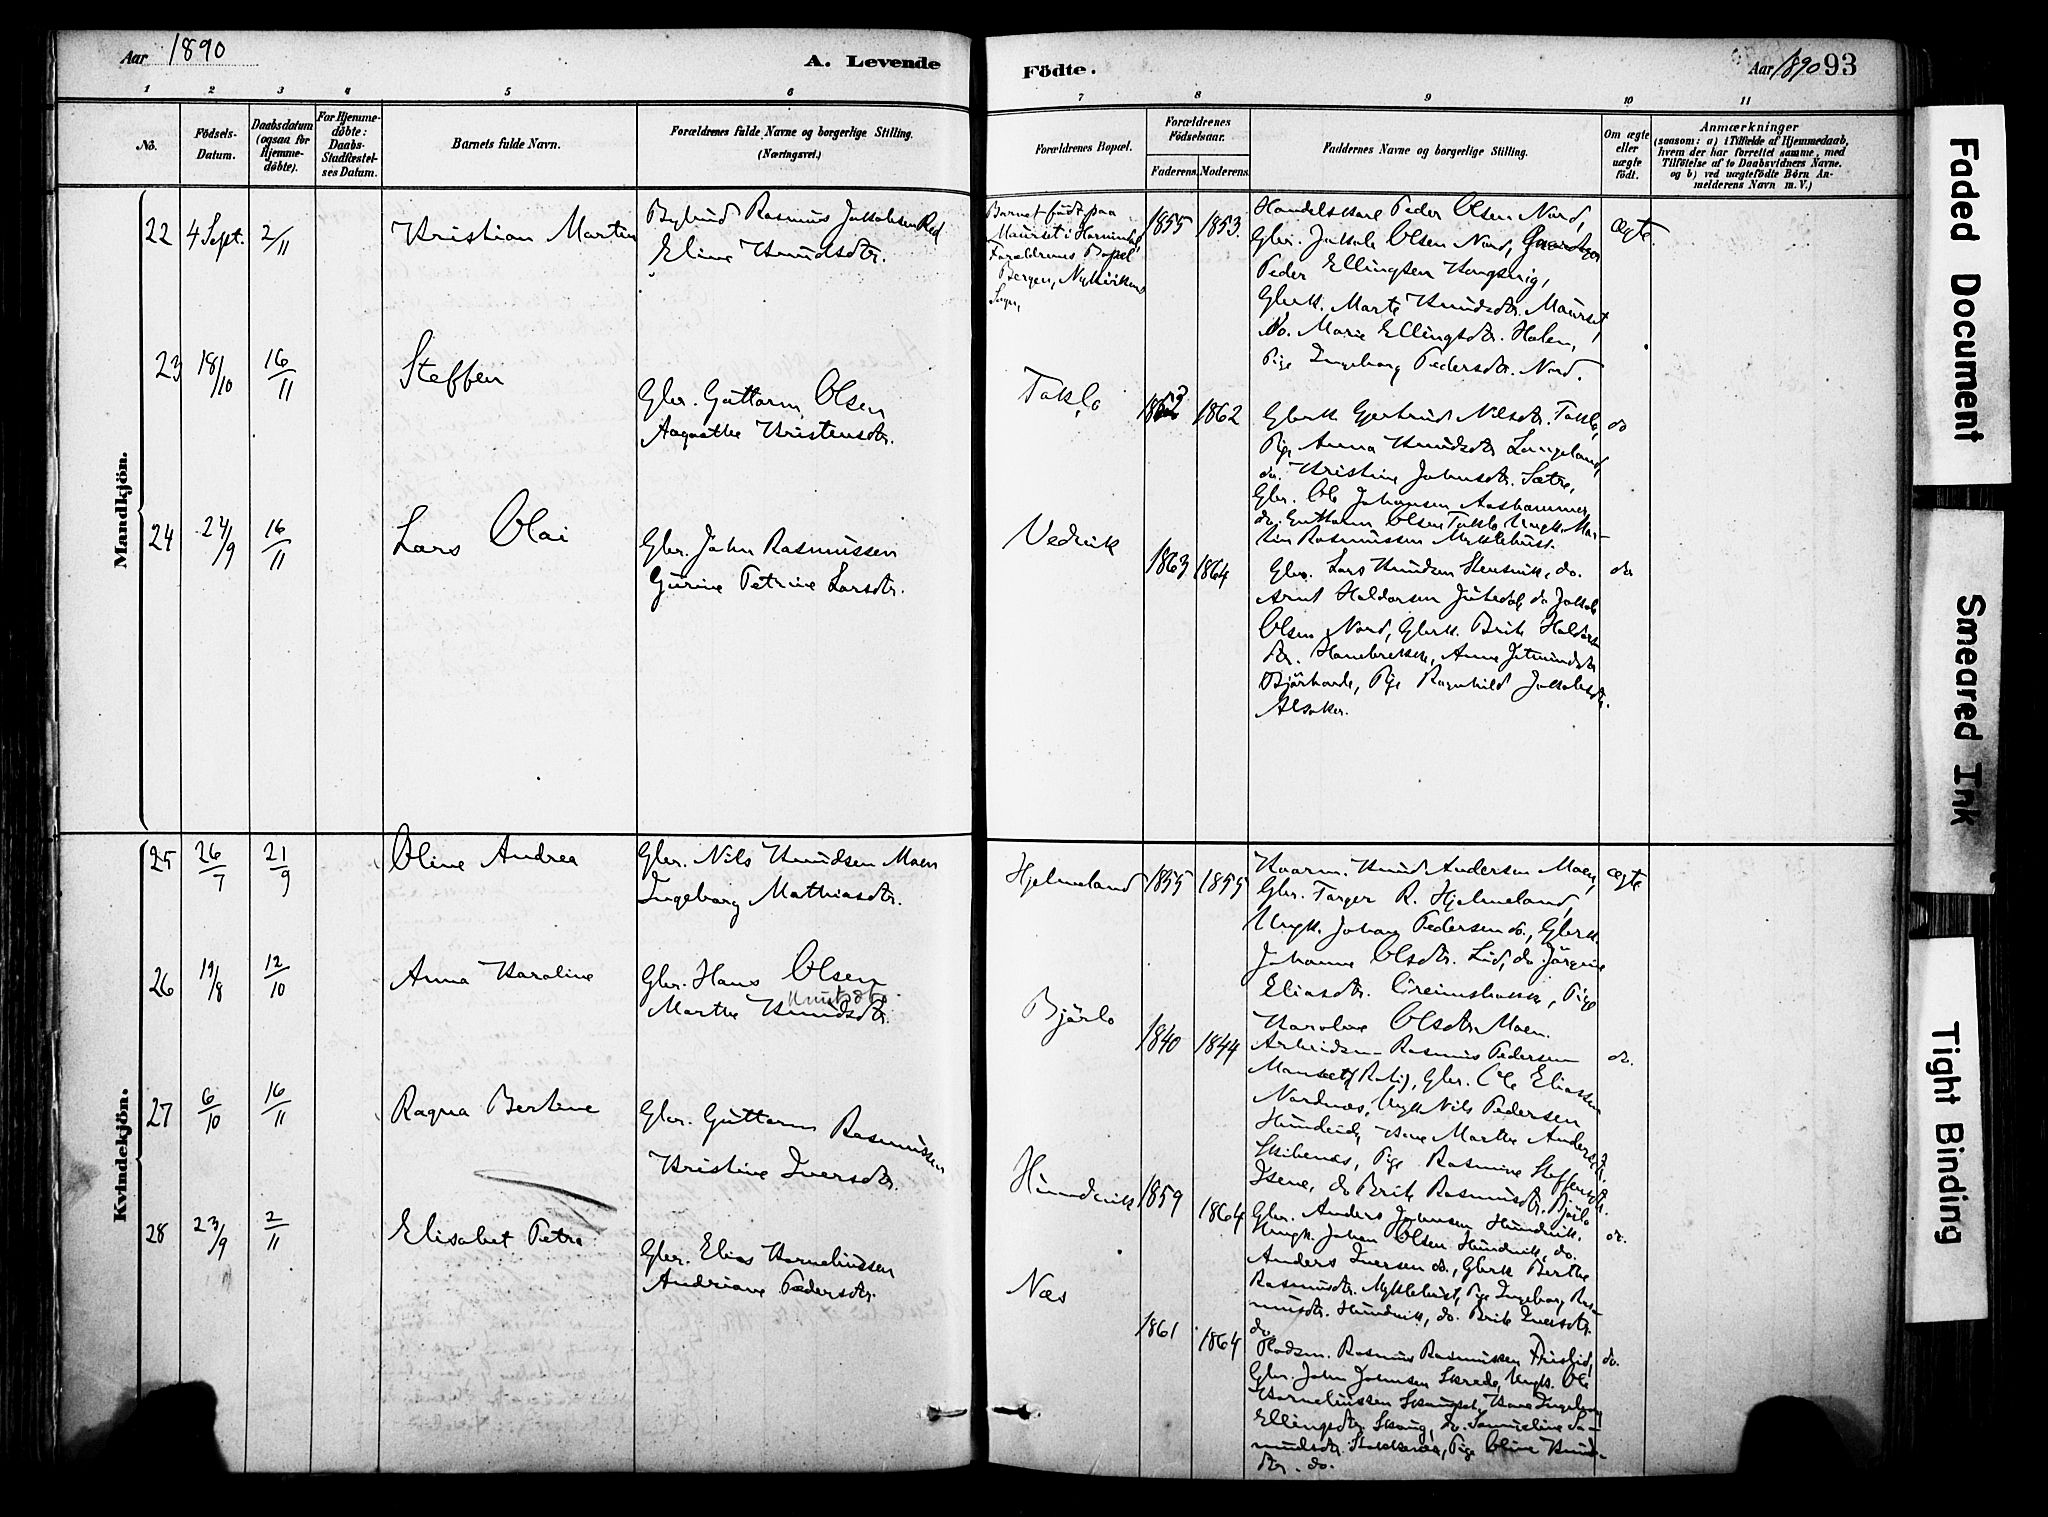 Aar 1890
A. Levende
Födte.
Aar 1890 93
1
2
3
4
5
6
7
8
9
10
11
No.
Födsels-
Datum.
Daabsdatum
(ogsaa for
Hjemme-
döbte).
For Hjemme-
döbte:
Daabs-
Stadfæstel-
ses Datum.
Barnets fulde Navn.
Forældrenes fulde Navne og borgerlige Stilling.
(Næringsvei.)
Forældrenes Bopæl.
Forældrenes
Födselsaar.
Faderens.
Moderens.
Faddernes Navne og borgerlige Stilling.
Om ægte
eller
uægte
født.
Anmærkninger
(saasom: a) i Tilfælde af Hjemmedaab,
hvem der har forrettet samme, med
Tilföielse af to Daabsvidners Navne.
og b) ved uægtefödte Börn An-
melderens Navn m. V.)
Mandkjön.
22
4 Sept.
2/11
Kristian Martin
Rasmus Jakobsen
Eline Knudsdtr.
Barnet født paa
Maurset i Hornindal,
Forældrenes Bopæl
Bergen,
1855
1853.
Handelskarl Peder Olsen Nord,
Gbr. Jakob Olsen Nord,
Peder Ellingsen
Gbrk. Marte Knudsdtr. Maurset
do. Marie Ellingsdtr. Holen,
Pige Ingeborg Pedersdtr. Nord.
ægte.
23
18/10
16/11
Steffen
Gbr. Guttorm Olsen
Aagathe Kristensdtr.
Taklo
1862
Gbrk Gjertrud Nilsdtr. Taklo,
Pige Anna Knudsdtr Langeland,
do. Kristine Johnsdtr. Sætre,
Gbr. Ole Johansen Aashammer,
do. Guttorm Olsen Taklo, Ungk. Mar-
tin Rasmussen Myklebust.
do
24
24/9
16/11
Lars Olai
Gbr. John Rasmussen
Gurine Petrine Larsdtr.
Nedvik
1863
1864
Gbr. Lars Knudsen do.
Arnt Haldorsen do Jakob
Olsen Nord, Gbrk. Brite Haldors
dtr. Hanebrekke, Anne
Pige Ragnhild Jakobsdtr.
Alsaker.
do
Kvindekjön.
25
26/7
21/9
Oline Andrea
Gbr. Nils Knudsen Moen
Ingeborg Mathiasdtr.
Hjelmeland
1855
1855
Kaarm. Knud Andersen Moen,
Gbr. Torger R. Hjelmeland,
Ungk. Johan Pedersen do., Gbrk.
Johanne Olsdtr. Lid, do. Jørgine
Eliasdtr. Pige
Karoline Olsdtr Moen.
ægte
26
19/8
12/10
Anna Karoline
Gbr. Hans Olsen
Knutsdtr.
Marthe Knudsdtr.
Bjørlo
1840
1844
Arbeidsm Rasmus Pedersen
Maurset Gbr. Ole Eliassen
Nordnæs, Ungk Nils Pedersen
Hundeide, Kone Marthe Andersdtr.
Skibenæs, Pige Rasmine Steffensdtr.
Isene, do Brite Rasmusdtr. Bjørlo
do.
27
6/10
16/11
Ragna Bertine
Gbr. Guttorm Rasmussen
Kristine Iversdtr.
Hundvik
1859
1864
Gbr. Anders Johnsen Hundvik.
Ungk. Johan Olsen Hundvik, do.
Anders Iversen do., Gbrk Berthe
Rasmusdtr. Myklebust, Pige Ingeborg Ras-
musdtr. Hundvik, do. Brite Iversdtr.
do
do.
28
23/9
2/11
Elisabet Petra
Gbr. Elias Kornelinssen
Andriane Pedersdtr.
Næs
1861
1864
Pladsm. Rasmus Rasmussen
Gbr. John Johnsen Skrede, Ungk. Ole
Kornelinssen Kone Ingeborg
Ellingsdtr. Skaug, do. Samueline Sa-
mundsdtr. Pige Oline Knuds-
dtr. do.
do.
Faded Document
Smeared Ink
Tight Binding